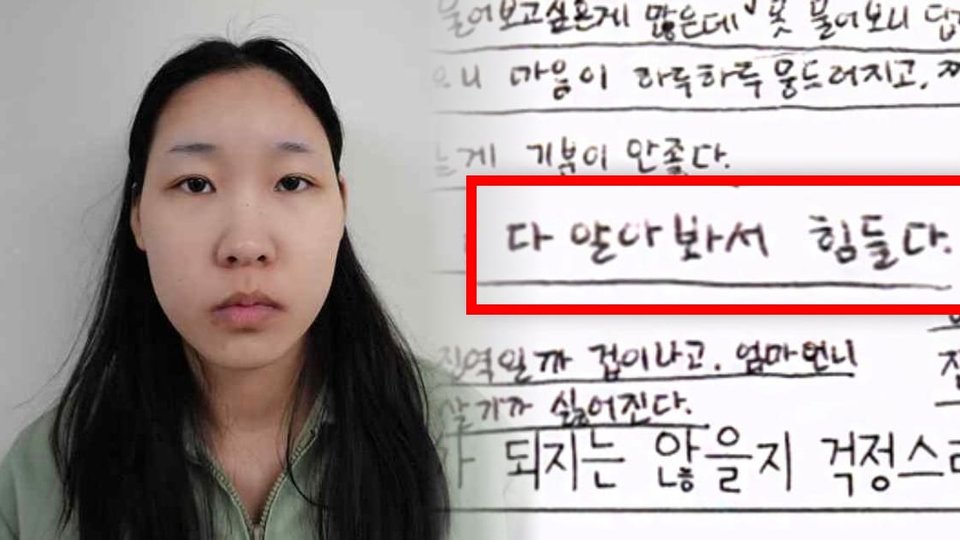 물어보고싶은게 많은데 못 물어보니 답
마음이 하루하루 뭉드러지고,
는게 기분이 안좋다.
다 알아봐서 힘들다.
징역일까 겁이나고, 엄마언니
살기가 싫어진다.
가 되지는 않을지 걱정스러